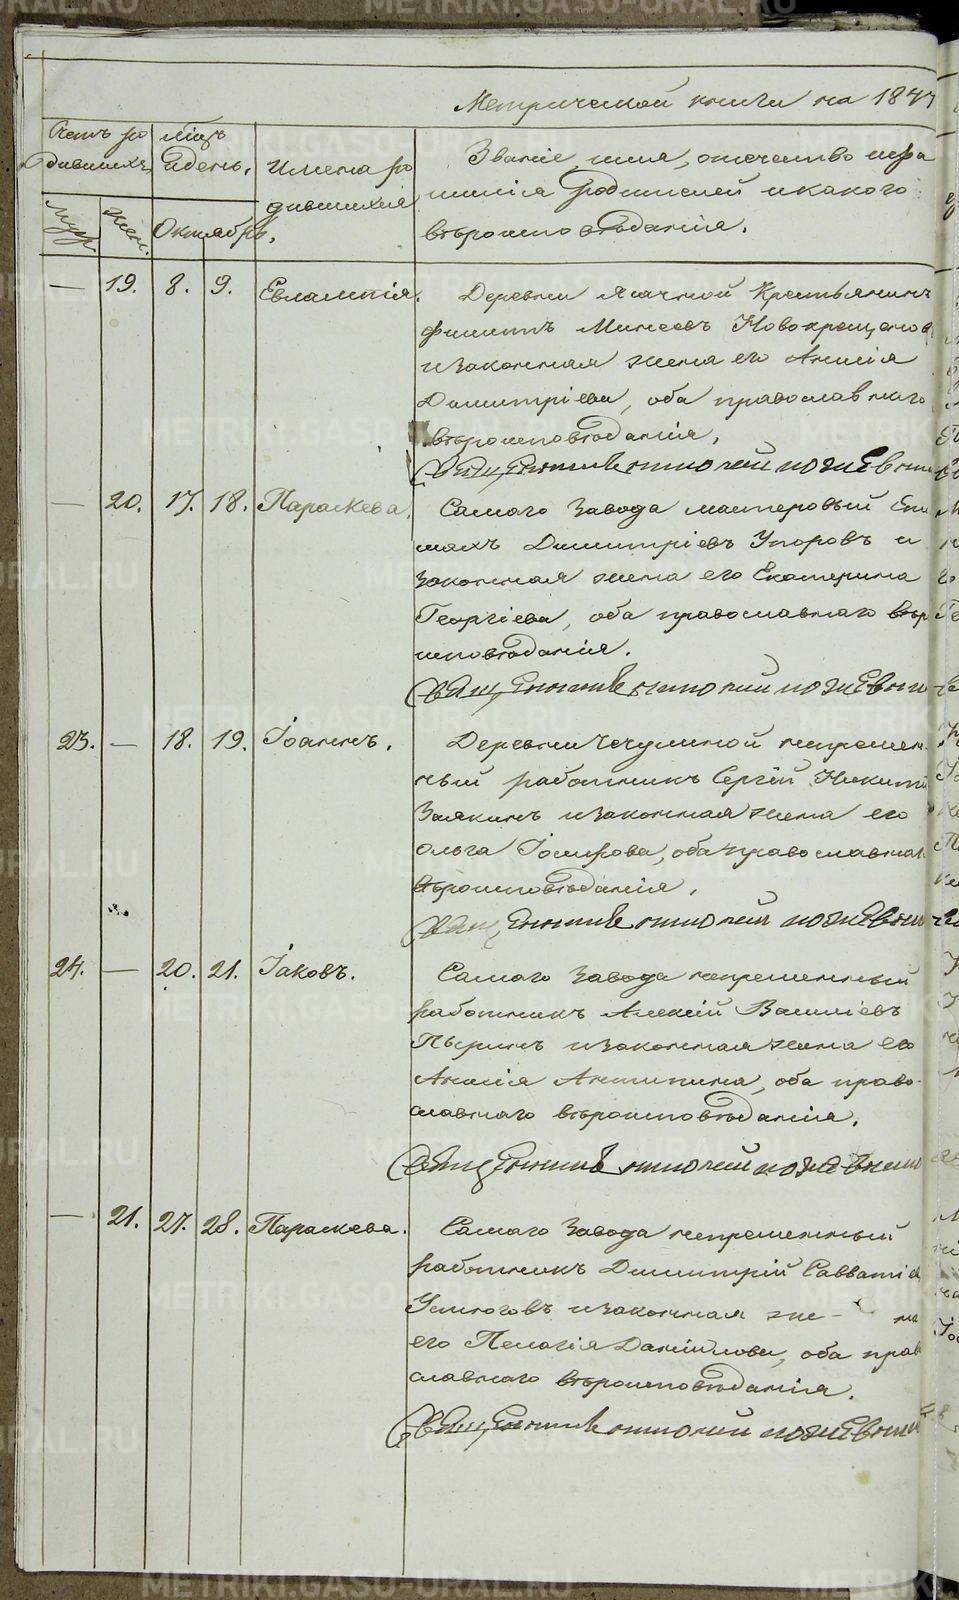 Метрической книги на 184
Счетъ ро
дившихся
Муж.
Жен.
Мѣсяцъ
и день.
Октябрь.
Имена ро
дившихся
Званіе, имя, отечество и фа
милія родителей и какого
вѣроисповѣданія.
— 19. 8. 9. Евлампія.
Деревни Ясачной Крестьянинъ
Филиппъ Минеевъ Новокрещенов
и законная жена его Анисія
Димитріева, оба православнаго
вѣроисповѣданія.
Священникъ
— 20. 17. 18. Параскева.
Самаго Завода мастеровый Епи
махъ Димитріевъ Упоровъ и
законная жена его Екатерина
Георгіева, оба православнаго вѣр
исповѣданія.
Священникъ
23. — 18. 19. Іоаннъ.
Деревни Чечулиной непремен
ный работникъ Сергій Никити
Заякинъ и законная жена его
Ольга Іосифова, оба православнаг
вѣроисповѣданія.
Священникъ
24. — 20. 21. Іаковъ.
Самаго Завода непременный
работникъ Алексій Василіевъ
Пѣринъ и законная жена его
Анисія Антипина, оба право-
славнаго вѣроисповѣданія.
Священникъ
— 21. 27. 28. Параскева.
Самаго Завода непременный
работникъ Димитрій Савваті
и законная же- на
его Пелагія Даниилова, оба прав
славнаго вѣроисповѣданія.
Священникъ
METRIKI.GASO-URAL.RU